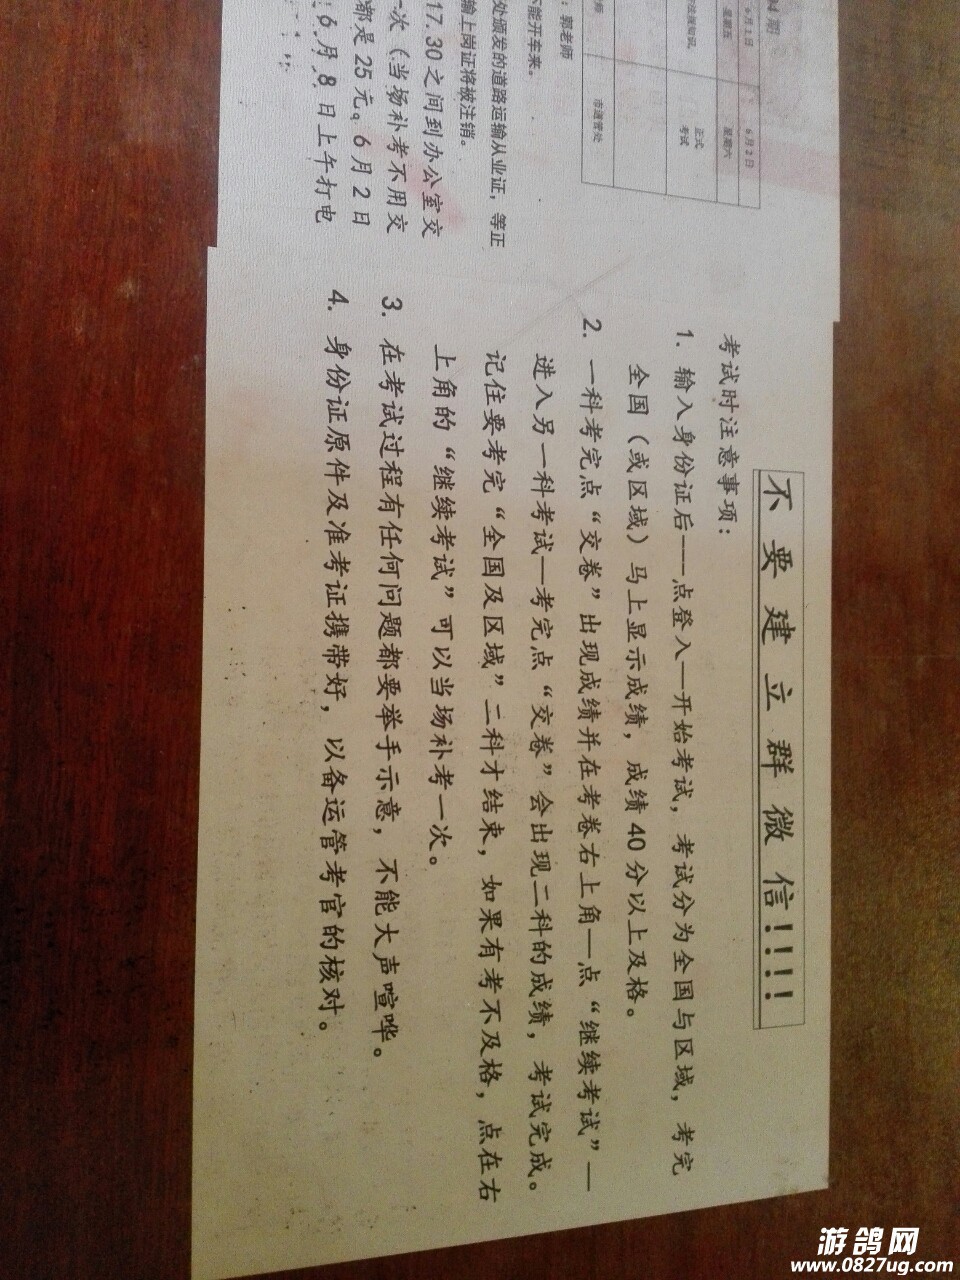 不要建立群微信！！！！
考试时注意事项：
1. 输入身份证后---点登入—开始考试，考试分为全国与区域，考完
全国（或区域）马上显示成绩，成绩 40 分以上及格。
2. 一科考完点“交卷”出现成绩并在考卷右上角—点“继续考试”—
进入另一科考试—考完点“交卷”会出现二科的成绩，考试完成。
记住要考完“全国及区域”二科才结束，如果有考不及格，点在右
上角的“继续考试”可以当场补考一次。
3. 在考试过程有任何问题都要举手示意，不能大声喧哗。
4. 身份证原件及准考证携带好，以备运管考官的核对。
期
6月1日
6月2日
星期五
星期六
正式
考试
市运管处
：郭老师
不能开车来。
处颁发的道路运输从业证，等正
输上岗证将被注销。
17.30 之间到办公室交
一次（当场补考不用交
都是 25 元。6 月 2 日
：6 月 8 日上午打电
游鸽网
www.0827ug.com